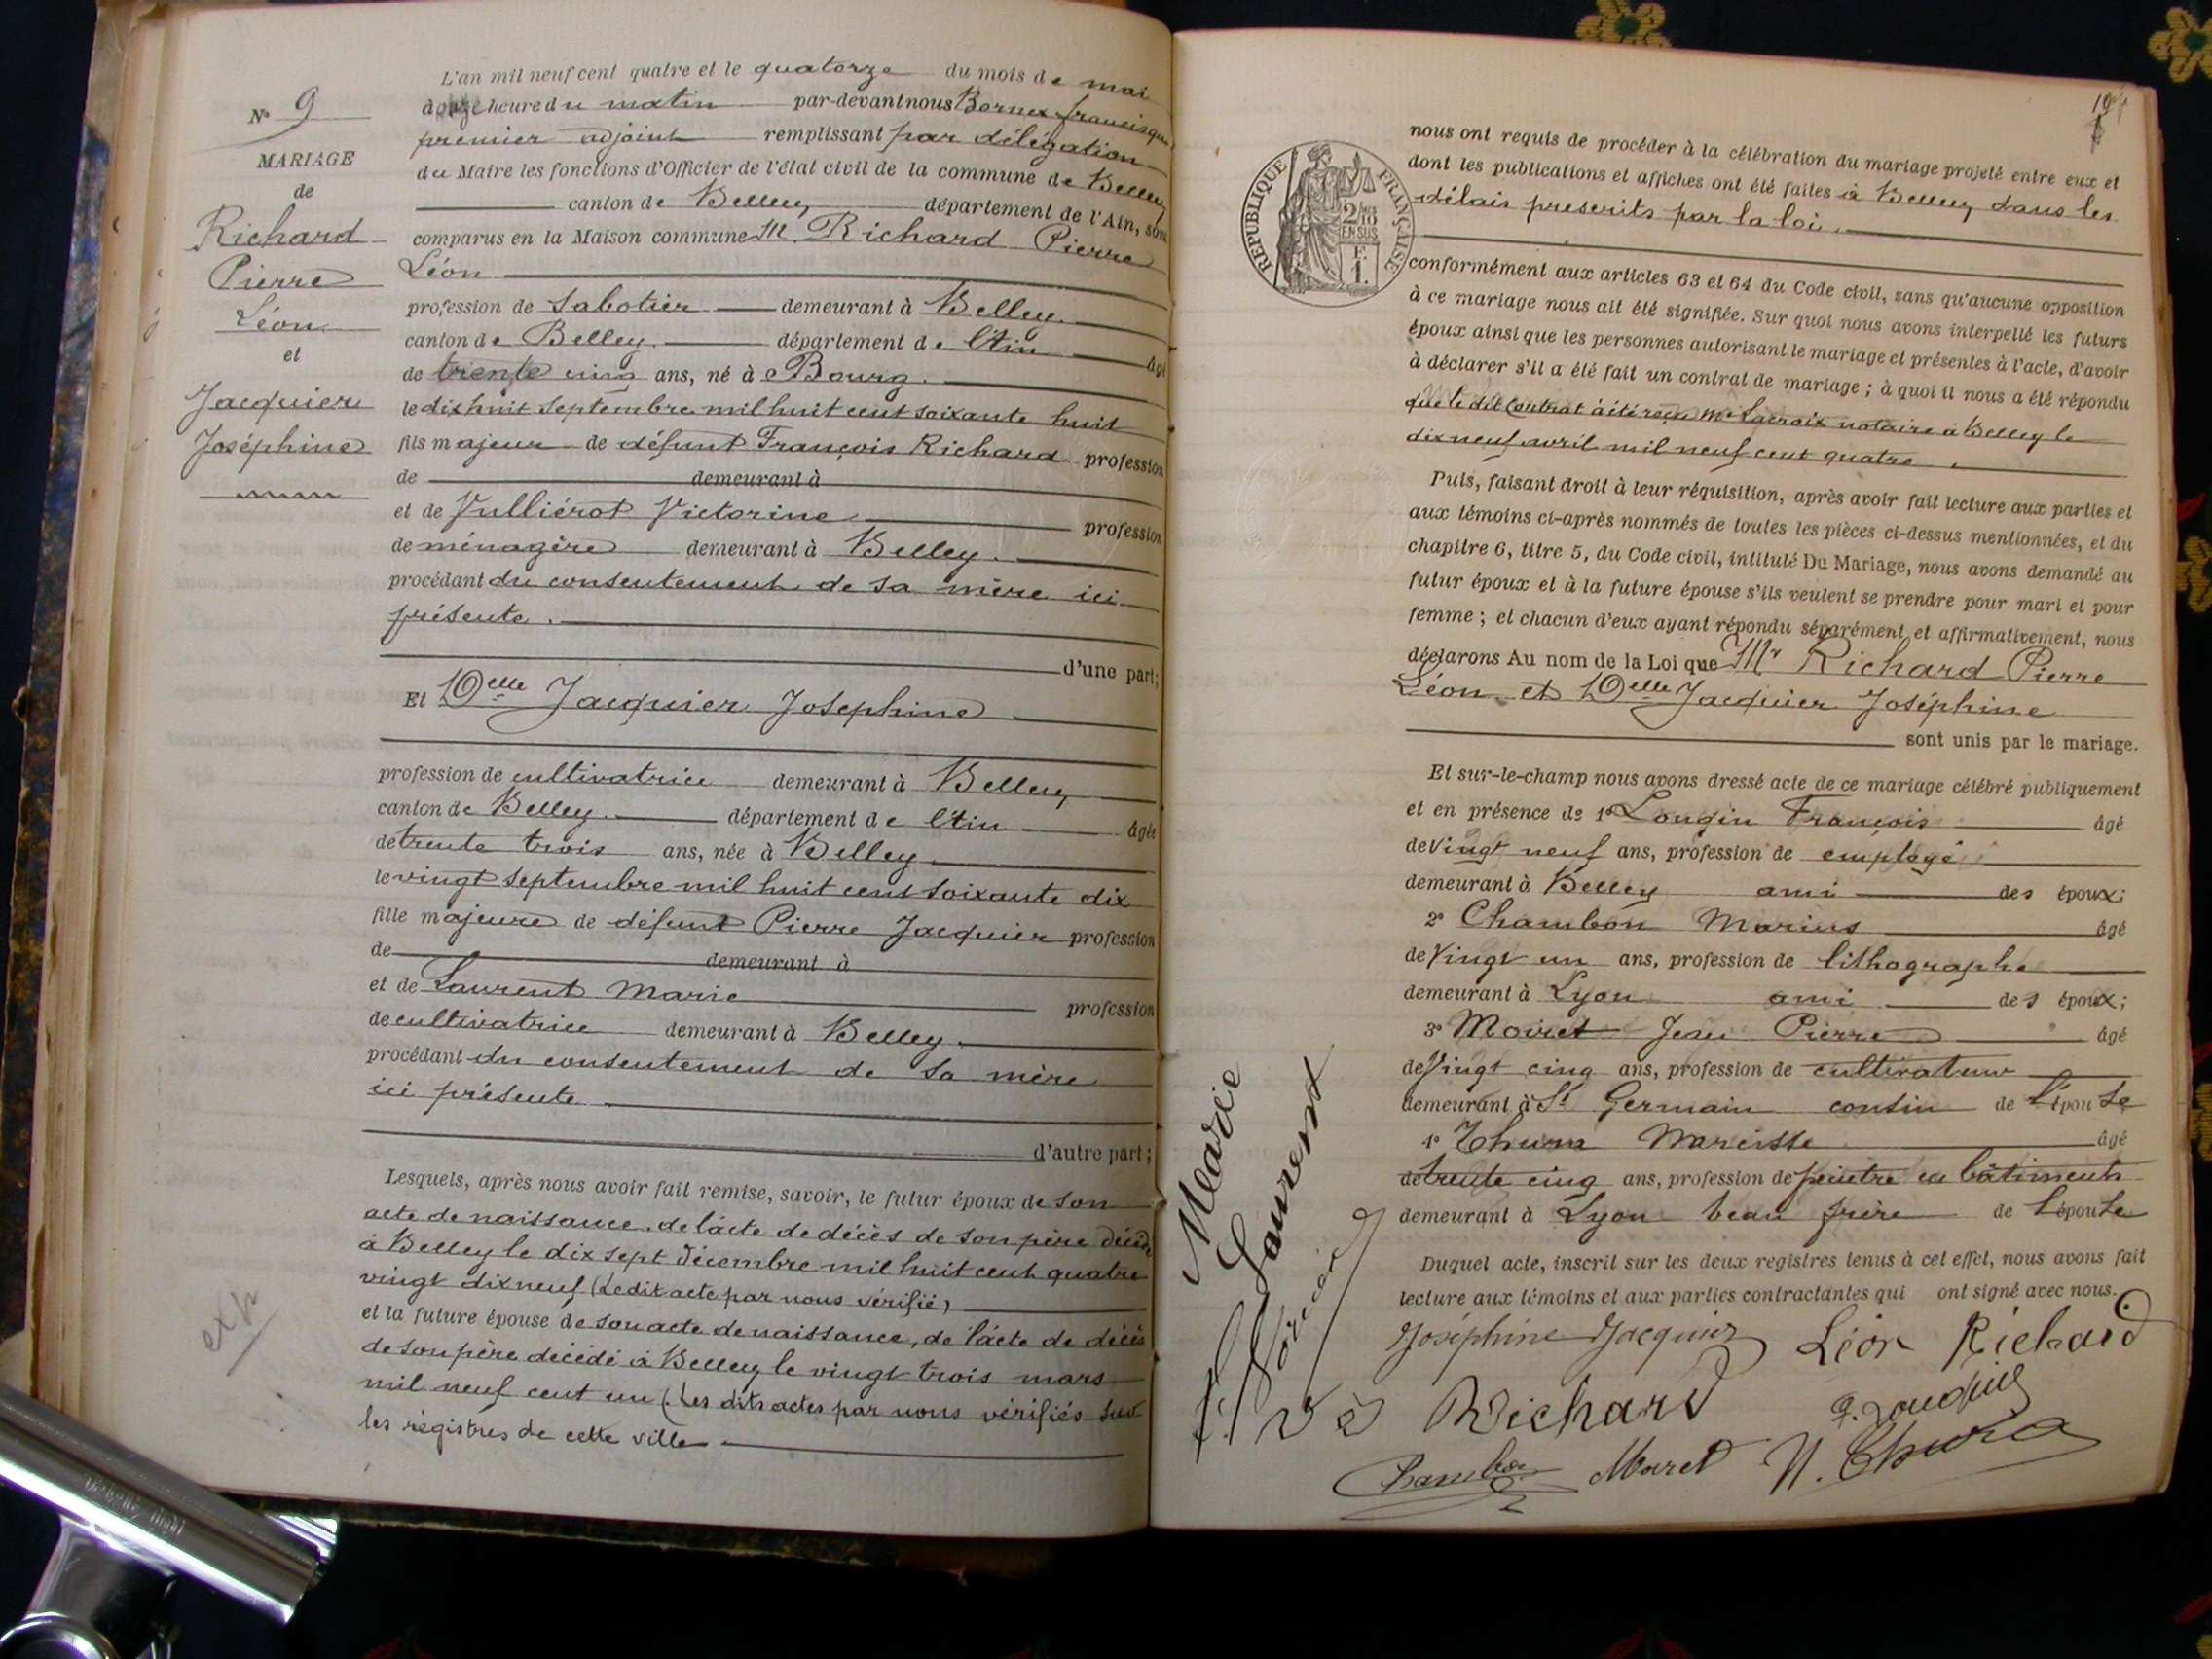 N° 9
MARIAGE
de
Richard
Pierre
Léon
et
Jacquier
Joséphine
exp
L'an mil neuf cent quatre et le quatorze du mois de mai
à onze heure du matin par-devant nous Bornex francisque
premier adjoint remplissant par délégation
du Maire les fonctions d'Officier de l'état civil de la commune de Belley
canton de Belley département de l'Ain, sont
comparus en la Maison commune M. Richard Pierre
Léon
profession de sabotier demeurant à Belley.
canton de Belley. département de l'Ain âgé
de trente cinq ans, né à Bourg.
le dix huit septembre mil huit cent soixante huit
fils majeur de défunt François Richard profession
de demeurant à
et de Vulliérot Victorine profession
de ménagère demeurant à Belley.
procédant du consentement de sa mère ici
présente.
d'une part;
Et Delle Jacquier Joséphine
profession de cultivatrice demeurant à Belley
canton de Belley. département de l'Ain âgée
de trente trois ans, née à Belley.
le vingt septembre mil huit cent soixante dix
fille majeure de défunt Pierre Jacquier profession
de demeurant à
et de Laurent Marie profession
de cultivatrice demeurant à Belley.
procédant du consentement de sa mère
ici présente.
d'autre part;
Lesquels, après nous avoir fait remise, savoir, le futur époux de son
acte de naissance. de l'acte de décès de son père décédé
à Belley le dix sept décembre mil huit cent quatre
vingt dix neuf (Ledit acte par nous vérifié)
et la future épouse de son acte de naissance, de l'acte de décès
de son père décédé à Belley le vingt trois mars
mil neuf cent un (Les dits actes par nous vérifiés sur
les registres de cette ville
RÉPUBLIQUE FRANÇAISE
2/10
EN SUS
F.
1.
nous ont requis de procéder à la célébration du mariage projeté entre eux et
dont les publications et affiches ont été faites à Belley dans les
délais prescrits par la loi.
conformément aux articles 63 et 64 du Code civil, sans qu'aucune opposition
à ce mariage nous ait été signifiée. Sur quoi nous avons interpellé les futurs
époux ainsi que les personnes autorisant le mariage et présentes à l'acte, d'avoir
à déclarer s'il a été fait un contrat de mariage; à quoi il nous a été répondu
que ledit Contrat a été reçu Me Lacroix notaire à Belley le
dix neuf avril mil neuf cent quatre.
Puis, faisant droit à leur réquisition, après avoir fait lecture aux parties et
aux témoins ci-après nommés de toutes les pièces ci-dessus mentionnées, et du
chapitre 6, titre 5, du Code civil, intitulé Du Mariage, nous avons demandé au
futur époux et à la future épouse s'ils veulent se prendre pour mari et pour
femme; et chacun d'eux ayant répondu séparément et affirmativement, nous
déclarons Au nom de la Loi que Mr Richard Pierre
Léon et Delle Jacquier Joséphine
sont unis par le mariage.
Et sur-le-champ nous avons dressé acte de ce mariage célébré publiquement
et en présence de 1° Lougin François âgé
de vingt neuf ans, profession de employé
demeurant à Belley ami des époux;
2° Chambon Marius âgé
de vingt un ans, profession de lithographe
demeurant à Lyon ami des époux;
3° Moiret Jean Pierre âgé
de vingt cinq ans, profession de cultivateur
demeurant à St Germain cousin de l'épouse
4° Thura Narcisse âgé
de trente cinq ans, profession de peintre en bâtiments
demeurant à Lyon beau frère de l'épouse
Duquel acte, inscrit sur les deux registres tenus à cet effet, nous avons fait
lecture aux témoins et aux parties contractantes qui ont signé avec nous.
Joséphine Jacquier Léon Richard
Ve Richard
Chambon Moiret N. Thura
Marie
Laurent